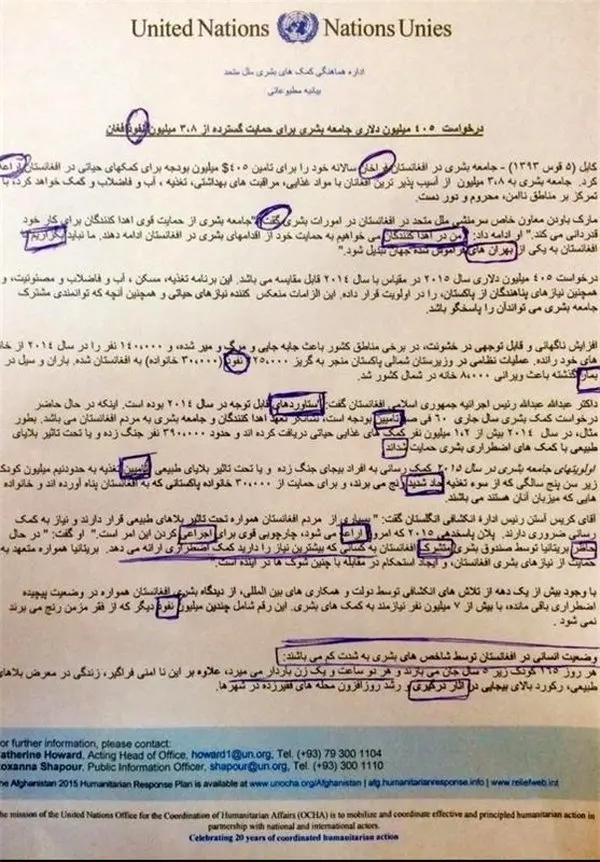 United Nations Nations Unies
اداره هماهنگی کمک های بشری ملل متحد
بیانیه مطبوعاتی
درخواست ۴۰۵ میلیون دلاری جامعه بشری برای حمایت گسترده از ۳.۸ میلیون نفوذ افغان
کابل (۵ قوس ۱۳۹۳) - جامعه بشری در افغانستان فراخان سالانه خود را برای تامین ۴۰۵$ میلیون بودجه برای کمکهای حیاتی در افغانستان اراعه
کرد. جامعه بشری به ۳.۸ میلیون از آسیب پذیر ترین افغانان با مواد غذایی، مراقبت های بهداشتی، تغذیه ، آب و فاضلاب و کمک خواهد کرده، با
تمرکز بر مناطق ناامن، محروم و دور دست.
مارک باودن معاون خاص سرمنشی ملل متحد در افغانستان در امورات بشری گفت "جامعه بشری از حمایت قوی اهدا کنندگان برای کار خود
قدردانی می کند." او ادامه داد: "من در اهدا کنندگان می خواهیم به حمایت خود از اقدامهای بشری در افغانستان ادامه دهند. ما نباید بگزاریم
افغانستان به یکی از بهران های فراموش شده جهان تبدیل شود."
درخواست ۴۰۵ میلیون دلاری سال ۲۰۱۵ در مقیاس با سال ۲۰۱۴ قابل مقایسه می باشد. این برنامه تغذیه، مسکن ، آب و فاضلاب و مصئونیت، و
همچنین نیازهای پناهندگان از پاکستان، را در اولویت قرار داده. این الزامات منعکس کننده نیازهای حیاتی و همچنین آنچه که توانمندی مشترک
جامعه بشری می تواندآن را پاسخگو باشد.
افزایش ناگهانی و قابل توجهی در خشونت، در برخی مناطق کشور باعث جابه جایی و مرگ و میر شده، و ۱۴۰،۰۰۰ نفر را در سال ۲۰۱۴ از خانه
های خود رانده. عملیات نظامی در وزیرستان شمالی پاکستان منجر به گریز ۲۵۰،۰۰۰ نفوذ (۳۰،۰۰۰ خانواده) به افغانستان شده. باران و سیل در
بهار گذشته باعث ویرانی ۸،۰۰۰ خانه در شمال کشور شد.
داکتر عبدالله عبدالله رئیس اجرائیه جمهوری اسلامی افغانستان گفت: "دستاوردهای قابل توجه در سال ۲۰۱۴ بوده است. اینکه در حال حاضر
درخواست کمک بشری سال جاری ۶۰ فی صد تامیین بودجه است، تعهد اهدا کنندگان و جامعه بشری به مردم افغانستان می باشد. بطور
مثال، در سال ۲۰۱۴ بیش از ۱۰۲ میلیون نفر کمک های غذایی حیاتی دریافت کرده اند و حدود ۳۹۰،۰۰۰ نفر جنگ زده و یا تحت تاثیر بلایای
طبیعی با کمک های اضطراری بشری حمایت شداند
اولویتهای جامعه بشری در سال ۲۰۱۵ کمک رسانی به افراد بیجای جنگ زده و یا تحت تاثیر بلایای طبیعی تامیین تغذیه به حدودنیم میلیون کودک
زیر سن پنج سالگی که از سوء تغذیه حاد شدید رنج می برند، و برای حمایت از ۳۰،۰۰۰ خانواده پاکستانی که به افغانستان پناه آورده اند و خانواده
هایی که میزبان آنان هستند می باشند.
آقای کریس آستن رئیس اداره انکشافی انگلستان گفت: "بسیاری از مردم افغانستان همواره تحت تاثیر بلاهای طبیعی قرار دارند و نیاز به کمک
رسانی ضروری دارند. پلان پاسخدهی ۲۰۱۵ که امروز اراعه می شود، چارچوبی قوی برای اجراعی کردن این امر است." او گفت: "در حال
حاظر بریتانیا توسط صندوق بشری مشترک افغانستان به کسانی که بیشترین نیاز را دارید کمک اضطراری ارائه می دهد. بریتانیا همواره متعهد به
حمایت از نیازهای بشری افغانستان، و ایجاد استحکام در مقابله با چنین شوک ها در آینده است."
با وجود بیش از یک دهه از تلاش های انکشافی توسط دولت و همکاری های بین المللی، از دیدگاه بشری افغانستان همواره در وضعیت پیچیده
اضطراری باقی مانده، با بیش از ۷ میلیون نفر نیازمند به کمک های بشری. این رقم شامل چندین میلیون نفوذ دیگر که از فقر مزمن رنج می برند
نمی شود.
وضعیت انسانی در افغانستان توسط شاخص های بشری به شدت کم می باشند:
هر روز ۱۶۵ کودک زیر ۵ سال جان می بازند و هر دو ساعت و یک زن باردار می میرد، علاوه بر این نا امنی فراگیر، زندگی در معرض بلاهای
طبیعی، رکورد بالای بیجایی در اثار درگیری و رشد روزافزون محله های فقیرزده در شهرها.
or further information, please contact:
atherine Howard, Acting Head of Office, howard1@un.org, Tel. (+93) 79 300 1104
oxanna Shapour, Public Information Officer, shapour@un.org, Tel. (+93) 300 1110
he Afghanistan 2015 Humanitarian Response Plan is available at www.unocha.org/Afghanistan | afg.humanitarianresponse.info | www.reliefweb.int
he mission of the United Nations Office for the Coordination of Humanitarian Affairs (OCHA) is to mobilize and coordinate effective and principled humanitarian action in
partnership with national and international actors.
Celebrating 20 years of coordinated humanitarian action